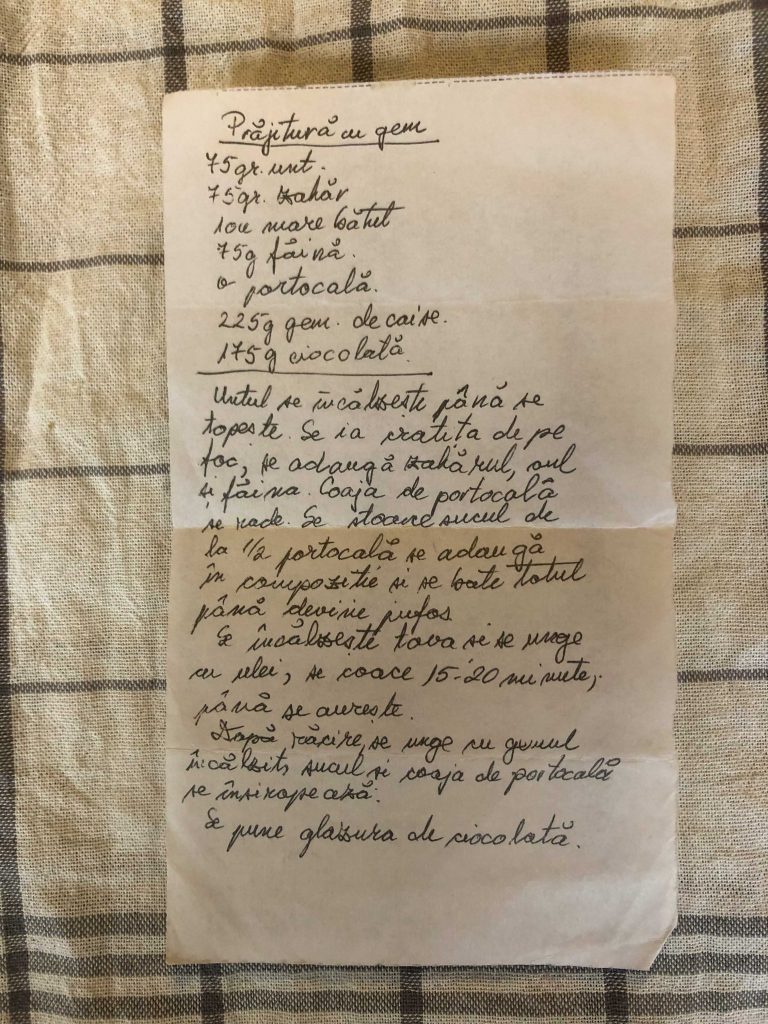 Prăjitură cu gem
75gr. unt.
75gr. zahăr
1ou mare bătut
75g făină.
o portocală.
225g gem. de caise.
175g ciocolată.
Untul se încălzește până se
topește. Se ia cratița de pe
foc, se adaugă zahărul, oul
și făina. Coaja de portocală
se rade. Se stoarce sucul de
la 1/2 portocală se adaugă
în compoziție și se bate totul
până devine pufos
Se încălzește tava și se unge
cu ulei, se coace 15-20 minute,
până se aurește.
După răcire, se unge cu gemul
încălzit, sucul și coaja de portocală
se însiropează.
Se pune glazura de ciocolată.